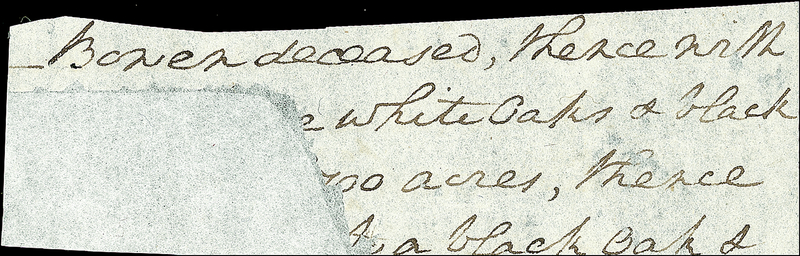 Bowen deceased, thence with
white Oaks & black
acres, thence
a black Oak &